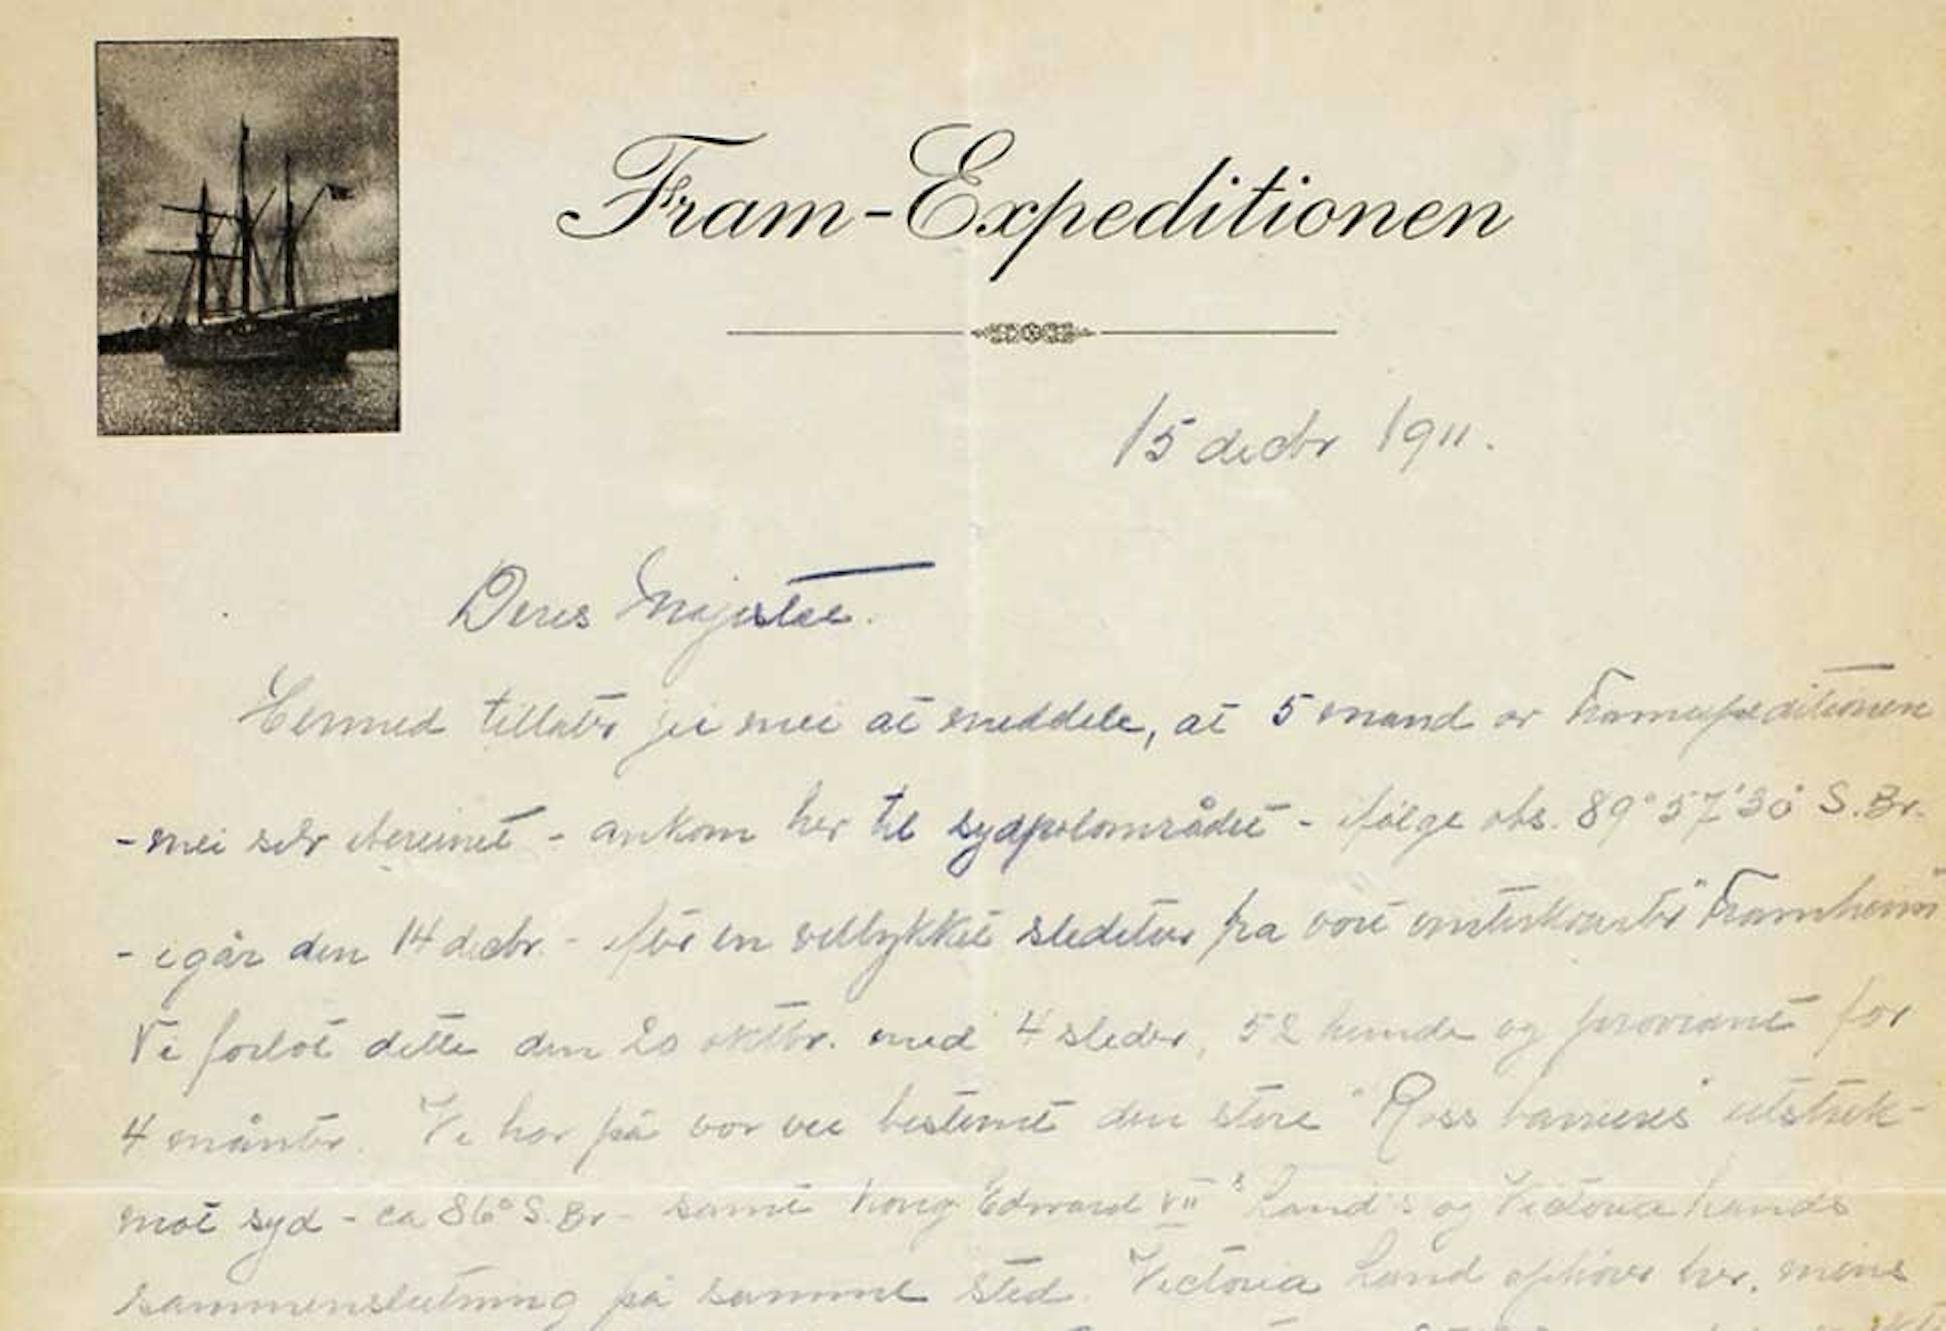 Fram-Expeditionen
15 decbr 1911.
Deres Majestæt.
Hermed tillater jei mei at meddele, at 5 mand av Framexpeditionen
- mei selv iberegnet - ankom her til sydpolområdet - ifølge obs. 89° 57' 30" S. Br.
- igår den 14 decbr. - efter en vellykket sledetur fra vort vinterkvarter "Framheim"
Vi forlot dette den 20 oktbr. med 4 sleder, 52 hunde og proviant for
4 måneder. Vi har på vor vei bestemt den store "Ross barrieres" utstræk-
mot syd - ca 86° S. Br - samt Kong Edward VII's Land's og Victoria Lands
sammenslutning på samme sted. Victoria Land ophører her, mens